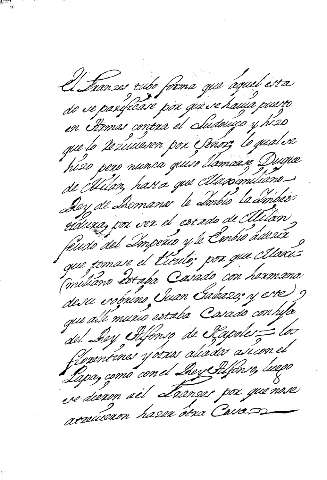 El Franzes tubo forma que aquel esta
do se pacificase por que se havia puesto
en Armas contra el Ludovico y hizo
que lo tuviesen por Señor, lo qual se
hizo pero nunca quiso llamarse Duque
de Milan, hasta que Maximiliano
Rey de Romanos le imbio la Imbes-
tidura, por ser el estado de Milan
feudo del Imperio y le
que tomase el titulo; por que Maxi-
miliano estaba Casado con hermana
de su sobrino, Juan Galeazo; y este
que alli murio estaba Casado con hija
del Rey Alfonso de Napoles los
florentines y otros aliados asi con el
Papa, como con el Rey Alfonso, luego
se dieron al Franzes por que no se
atrevieron hazer otra Cosa